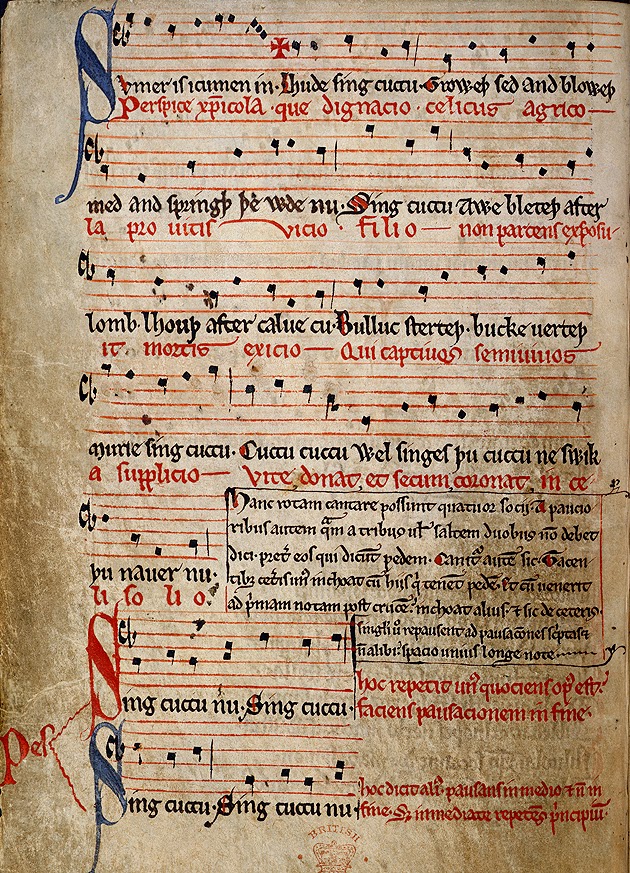 Sumer is icumen in · Lhude sing cuccu · Groweþ sed and bloweþ
Perspice xp̄icola · que dignacio · celicus agrico
med and springþ þe wde nu · Sing cuccu Awe bleteþ after
la pro uitis vicio filio non parcens exposu
lomb · lhouþ after calue cu · Bulluc sterteþ · bucke uerteþ
it mortis exicio Qui captiuos semiuiuos
murie sing cuccu · Cuccu cuccu Wel singes þu cuccu ne swik
a supplicio vite donat, et secum coronat in ce
þu nauer nu ·
li solio ·
Hanc rotam cantare possunt quatuor socii · A paucio
ribus autem q̄m a tribus ul̄ saltem duobus nō debet
dici · pret̄ eos qui dicūt pedem · Canit̄ autē sic · Tacen
tib; cet̄is un9 inchoat cū hiis q̄ tenent pedē · Et cū uenerit
ad p̄mam notam post crucē · inchoat alius · ⁊ sic de ceteris ·
singli ū repausent ad pausacōnes sc̄ptas ⁊
n̄ alibi · spacio unius longe note
Sing cuccu nu · Sing cuccu ·
hoc repetit un9 quociens op9 est ·
faciens pausacionem in fine ·
Pes
Sing cuccu · Sing cuccu nu ·
hoc dicit ali9 · pausans in medio ⁊ n̄ in
fine · S; immediate repetens p̄ncipiū ·
BRITISH